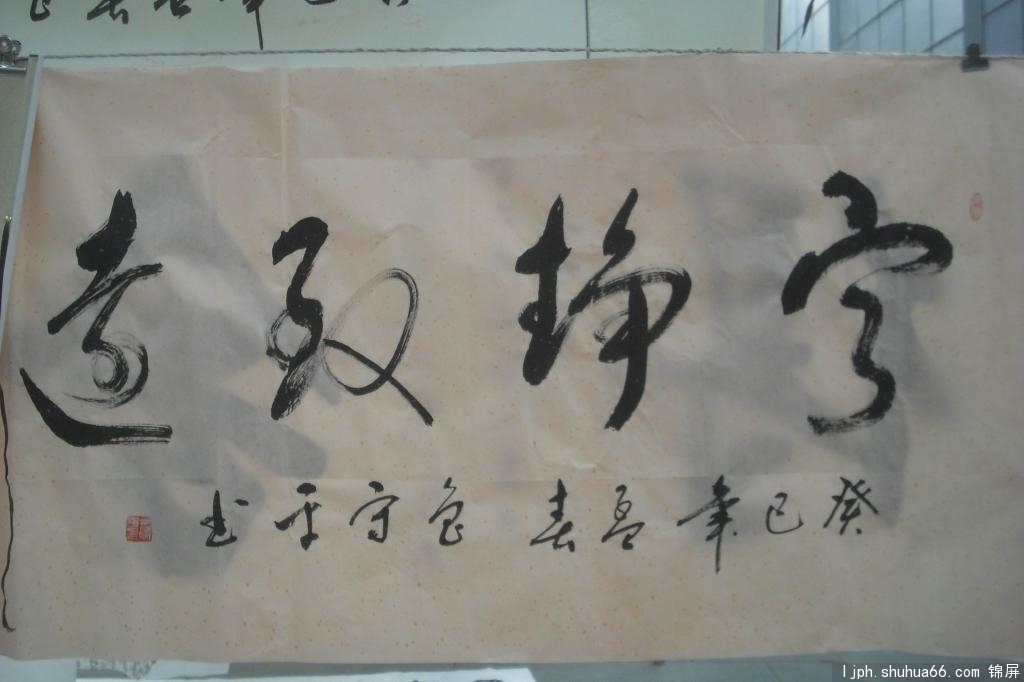 宁静致远
癸巳年孟春鲁守平书
ljph.shuhua66.com 锦屏